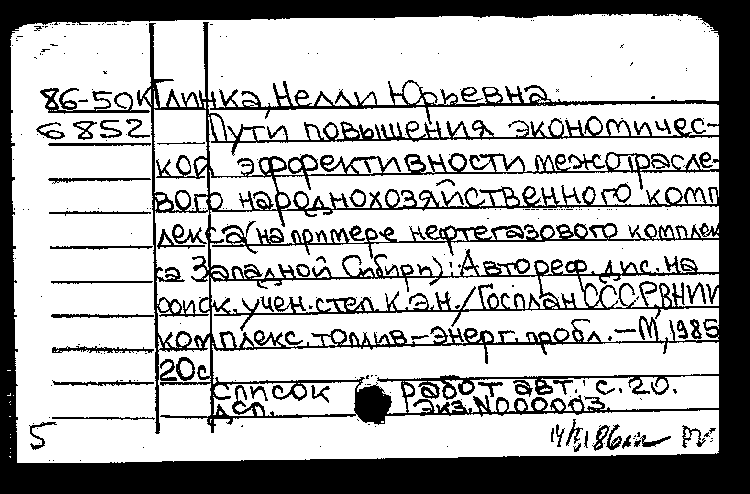 86-50К Глинка, Нелли Юрьевна.
6852 Пути повышения экономичес-
кой эффективности межотрасле-
вого народнохозяйственного комп
лекса (на примере нефтегазового комплек
са Западной Сибири): Автореф. дис. на
соиск. учен. степ. к.э.н. / Госплан СССР, ВНИИ
комплекс. топлив.-энерг. пробл. — М, 1985
20с
Список работ авт.: с. 20.
ДСП. Экз. N000003.
5